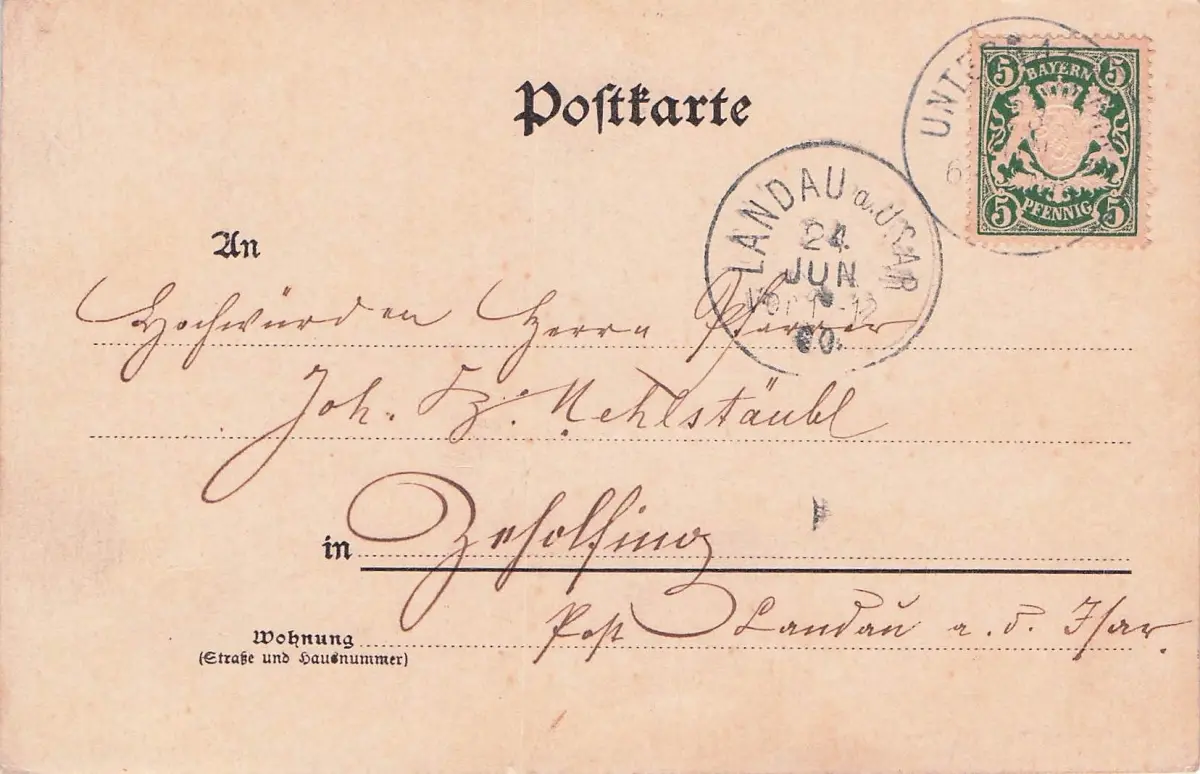 Postkarte
5 BAYERN 5
5 PFENNIG 5
LANDAU a. ISAR
24
JUN
00.
An
Hochwürden Herrn Pfarrer
Joh. Bz. Mehlstäubl
in Zeholfing
Post Landau a. d. Isar.
Wohnung
(Straße und Hausnummer)